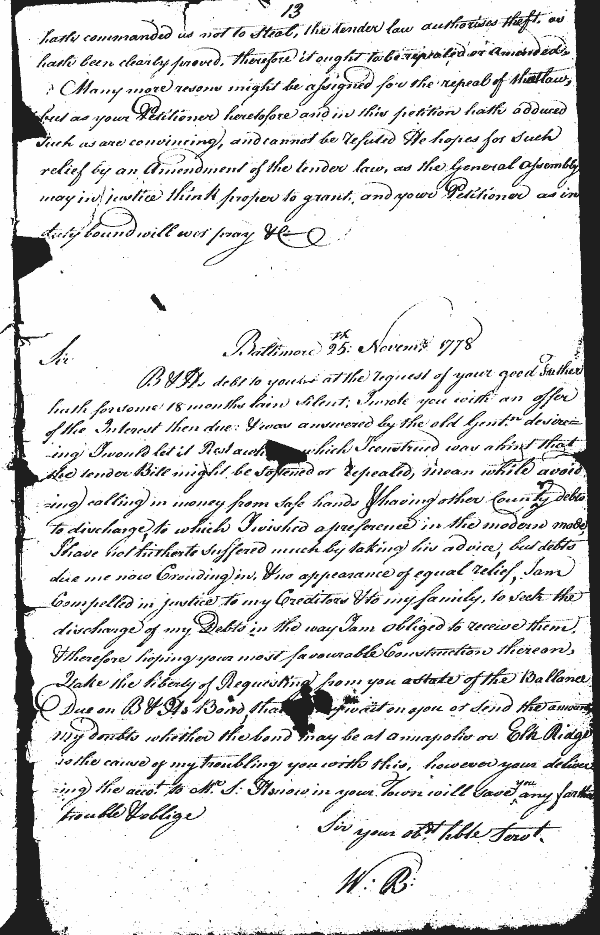 13
hath commanded us not to Steal, the tender law authorises theft. as
hath been clearly proved. therefore it ought to be repealed or amended,
Many more resons might be assigned for the repeal of that law,
but as your Petitioner heretofore and in this petition hath adduced
such as are convincing, and cannot be refuted He hopes for such
relief by an Amendment of the tender law, as the General assembly
may in justice think proper to grant, and your Petitioner as in
duty bound will ever pray &c
Baltimore 25th: Novemr. 1778
Sir
B & Hs debt to yours at the request of your good Father
hath for some 18 months lain Silent; I wrote you with an offer
of the Interest then due: & was answered by the old Gentn. desire=
=ing I would let it Rest which I construed was a hint that
the tender Bill might be softened or repealed, mean while avoid
=ing calling in money from safe hands I having other County debts
to discharge, to which I wished a preference in the modern mode,
I have not hitherto suffered much by taking his advice, but debts
due me now Crouding in, & no appearance of equal relief, I am
Compelled in justice to my Creditors & to my family, to seek the
discharge of my Debts in the way I am obliged to receive them,
& therefore hoping your most favourable Construction thereon,
I take the liberty of Requesting from you a state of the Ballance
Due on B & Hs Bond that wait on you or send the amount
my doubts whether the bond may be at annapolis or Elk Ridge
is the cause of my troubling you with this, however your deliver
=ing the acct. to Mr. S. H now in your Town will save you any farther
trouble & oblige
Sir your obt. hble Servt.
W: R: